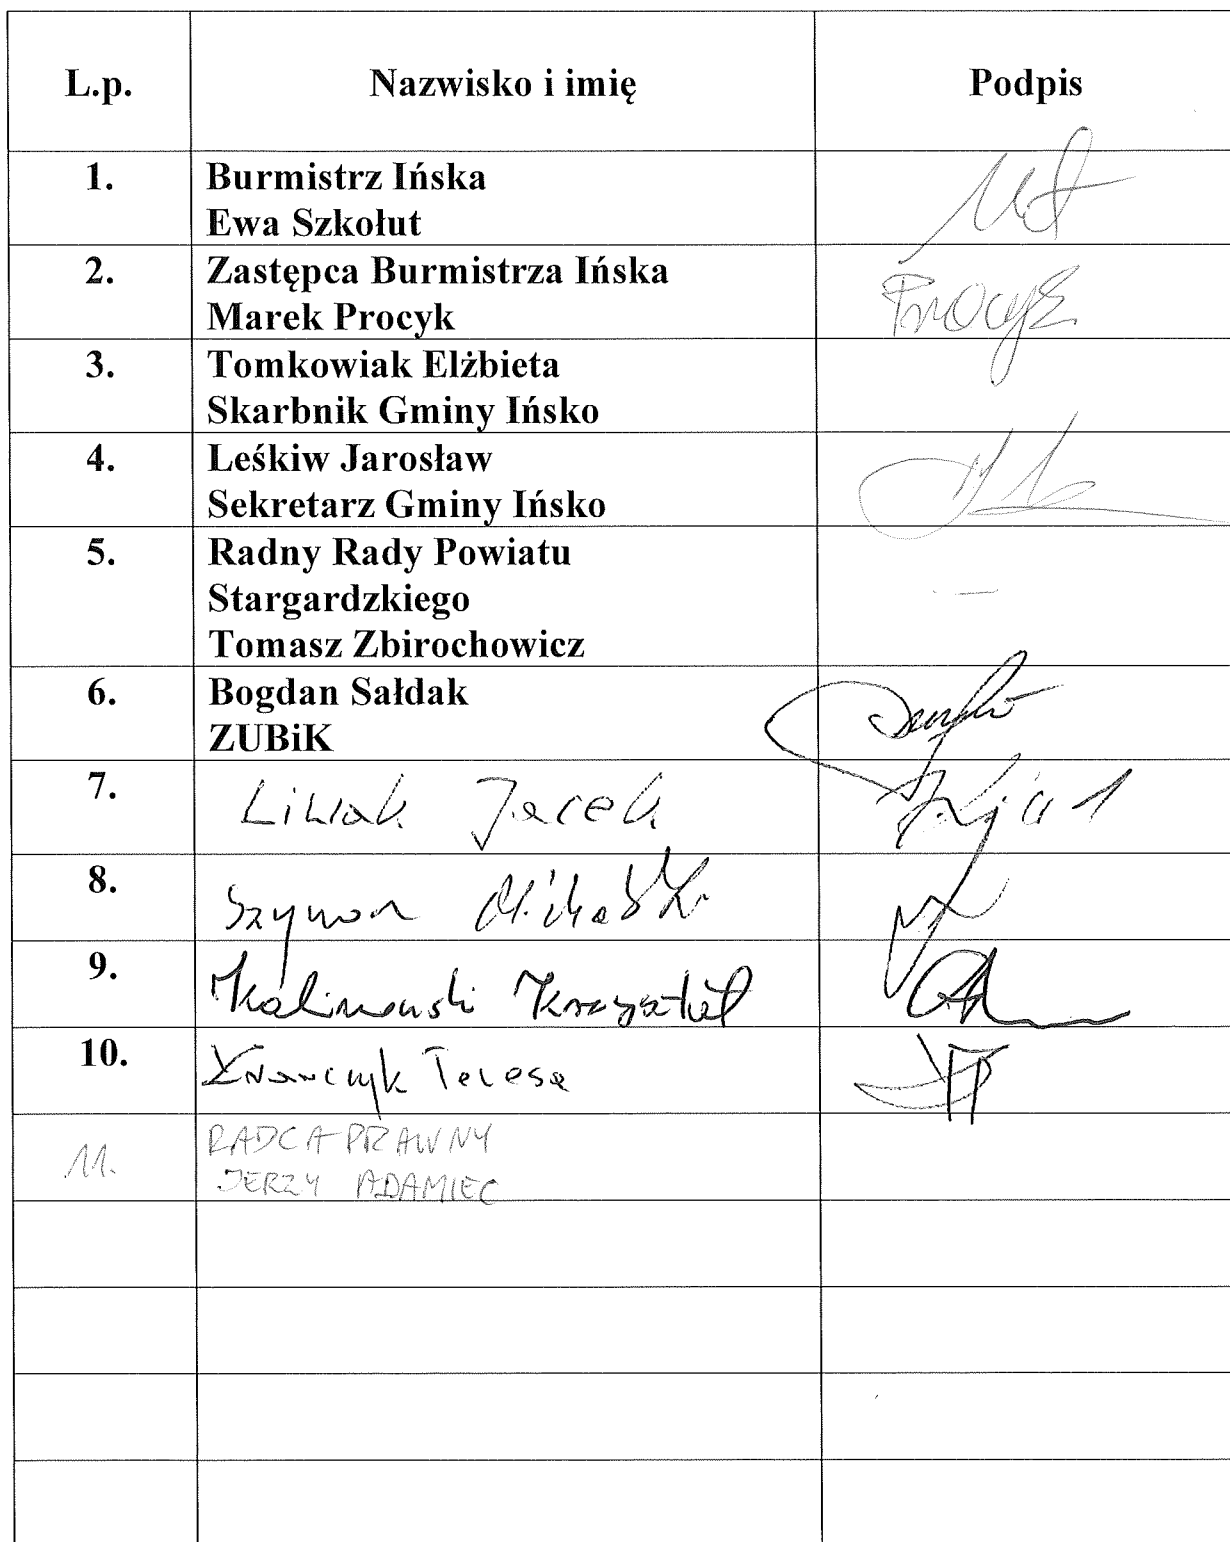 L.p. Nazwisko i imię Podpis
1. Burmistrz Ińska
Ewa Szkołut
2. Zastępca Burmistrza Ińska
Marek Procyk Procyk
3. Tomkowiak Elżbieta
Skarbnik Gminy Ińsko
4. Leśkiw Jarosław
Sekretarz Gminy Ińsko
5. Radny Rady Powiatu
Stargardzkiego —
Tomasz Zbirochowicz
6. Bogdan Sałdak
ZUBiK
7. Jacek
8. Szymon
9. Kalinowski Krzysztof
10. Teresa
11. RADCA PRAWNY
JERZY ADAMIEC